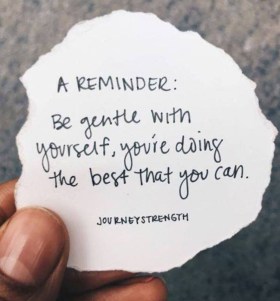 A REMINDER:
Be gentle with
yourself, you're doing
the best that you can.
JOURNEYSTRENGTH